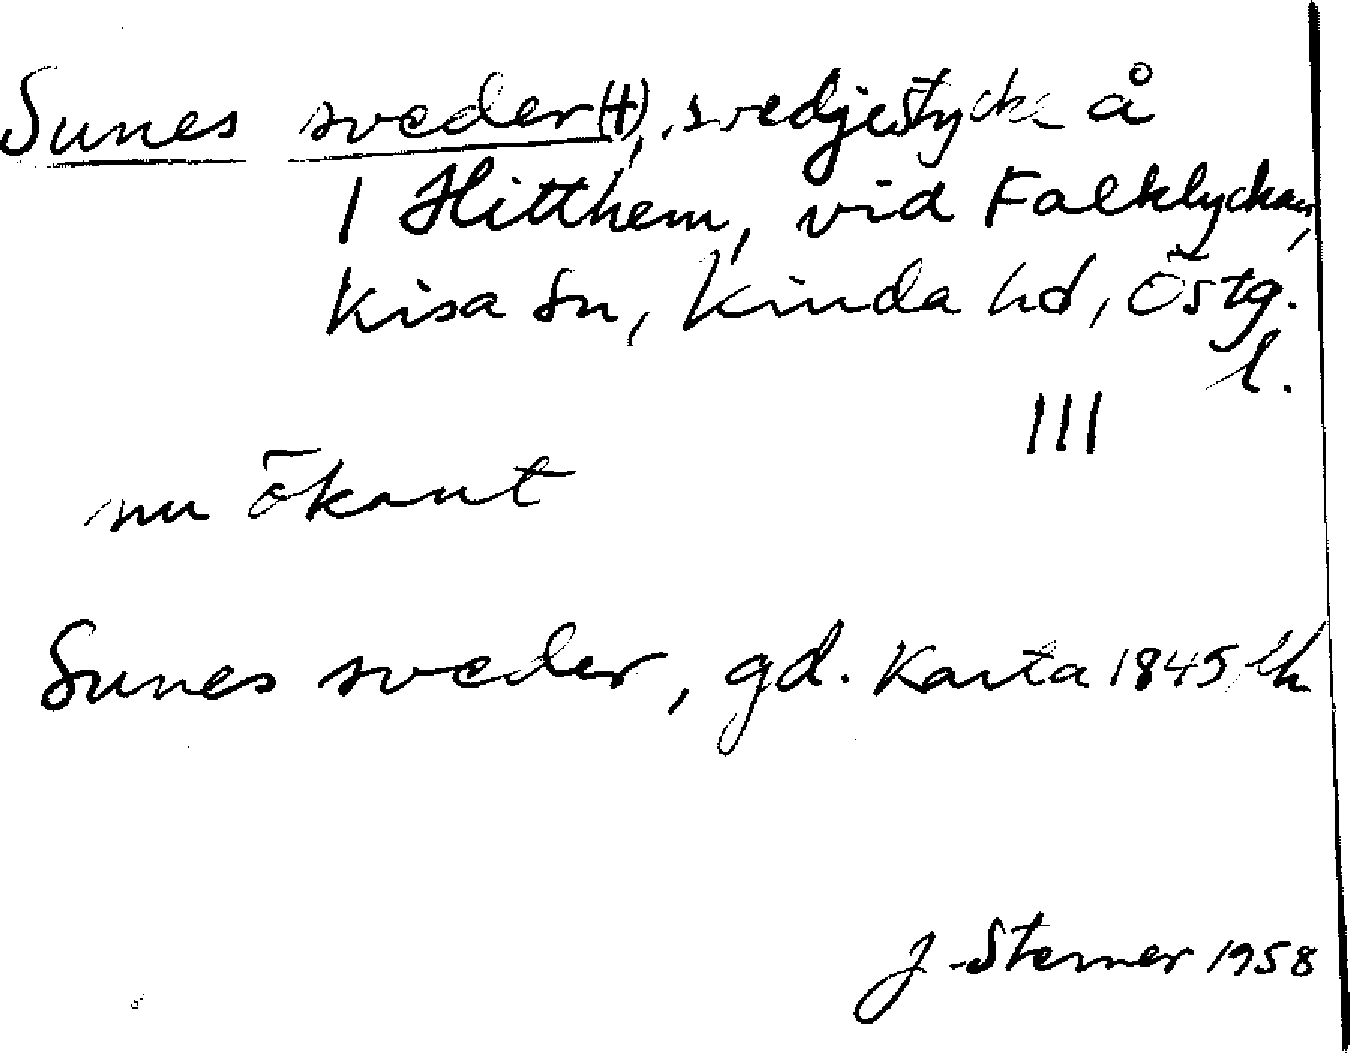 Sunes sveder (†), svedjestycke å
1 Hitthem, vid Falklyckan,
Kisa sn, Kinda hd, Östg.
l.
III
nu okänt
Sunes sveder, gd. Karta 1845
J. Sterner 1958